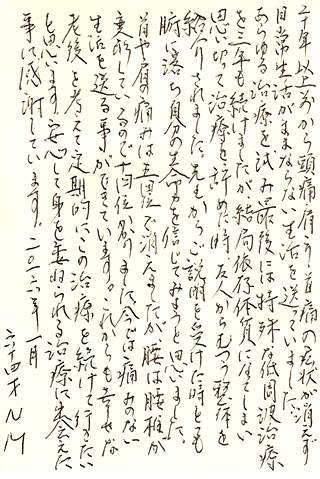 二十年以上前から頭痛肩こり首痛の症状が消えず
日常生活がままならない生活を送っていました。
あらゆる治療を試み最後には特殊な低周波治療
を三年も続けましたが結局依存体質になってしまい
思い切って治療を辞めた時友人からむつう整体を
紹介されました。先生からご説明を受けた時とても
腑に落ち自分の生命力を信じてみようと思いました。
首や肩の痛みは五回位で消えましたが腰は腰椎が
しているので十四位かかりました。今では痛みのない
生活を送る事ができています。これからも幸せな
老後を考えて定期的にこの治療を続けて行きたい
と思います。安心して身を委ねられる治療に出会えた
事に感謝しています。二〇一六年一月
六十四才 N.M